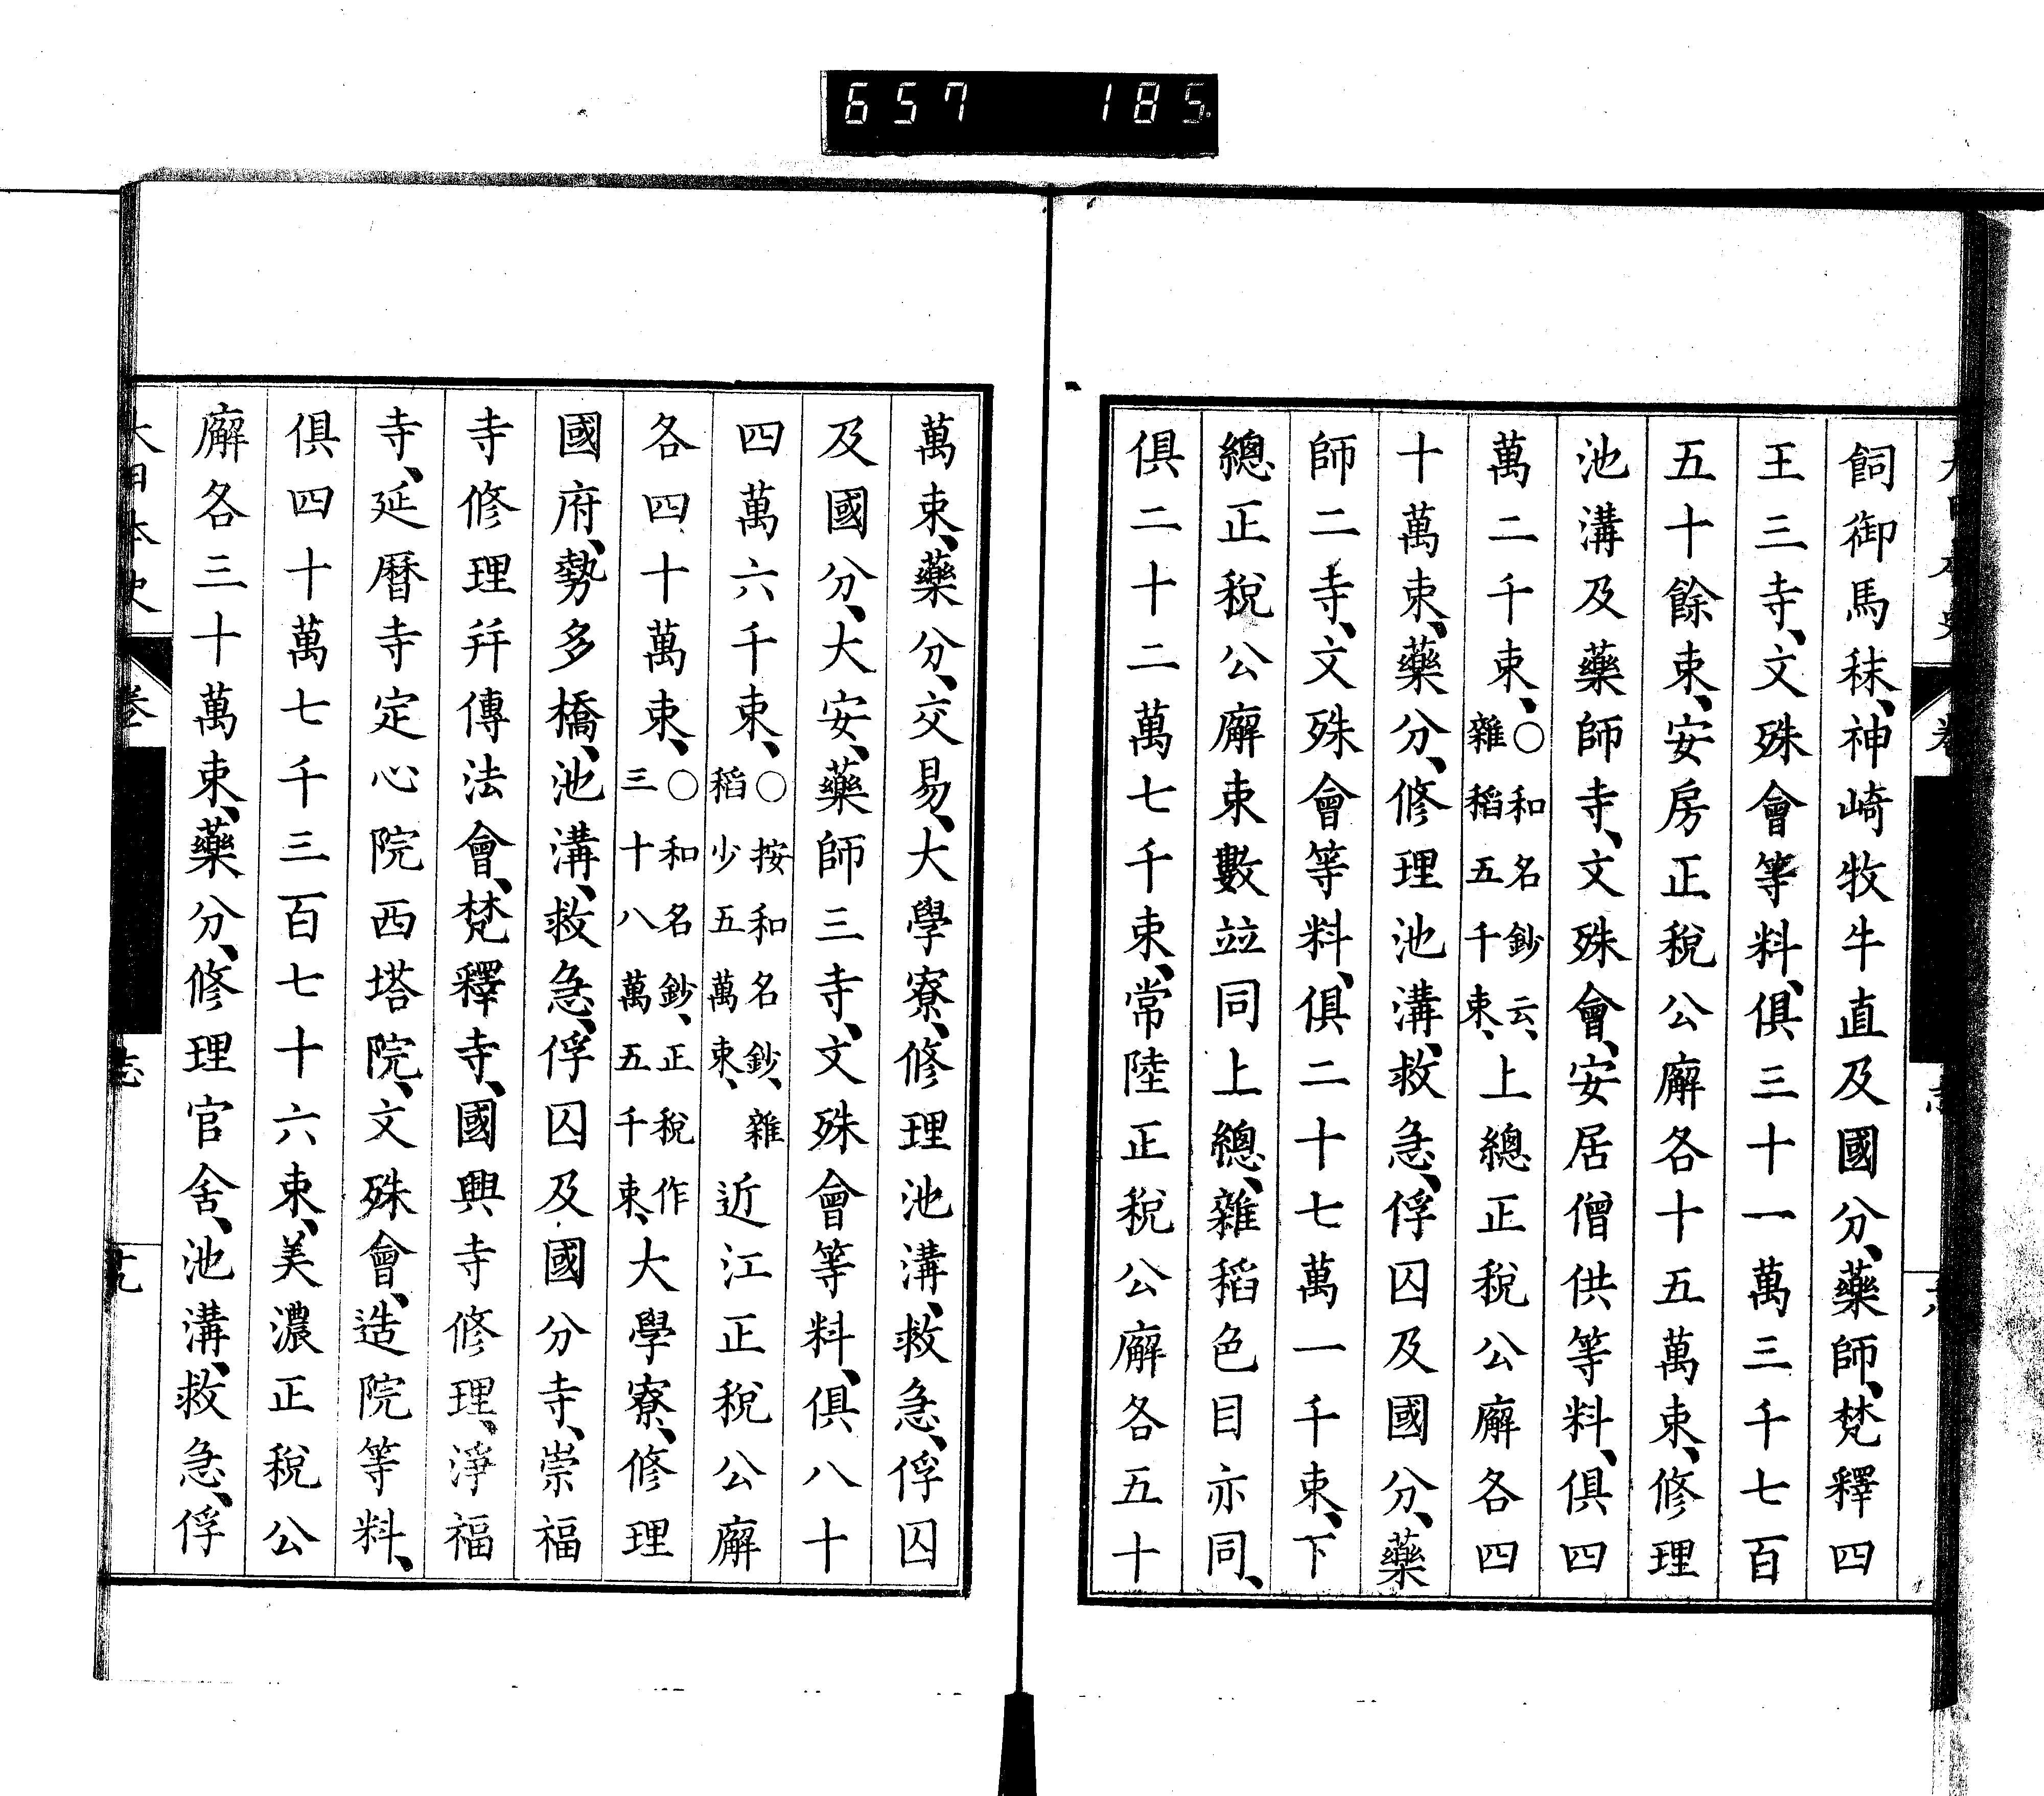 657 185
飼御馬秣、神崎牧牛直及國分、藥師、梵釋四
王三寺、文殊會等料、俱三十一萬三千七百
五十餘束、安房正稅公廨各十五萬束、修理
池溝及藥師寺、文殊會、安居僧供等料、俱四
萬二千束、○和名鈔云、雜稻五千束、上總正稅公廨各四
十萬束、藥分、修理池溝、救急、俘囚及國分、藥
師二寺、文殊會等料、俱二十七萬一千束、下
總正稅公廨束數竝同上總、雜稻色目亦同、
俱二十二萬七千束、常陸正稅公廨各五十
萬束、藥分、交易、大學寮、修理池溝、救急、俘囚
及國分、大安、藥師三寺、文殊會等料、俱八十
四萬六千束、○按和名鈔、雜稻少五萬束、近江正稅公廨
各四十萬束、○和名鈔、正稅作三十八萬五千束、大學寮、修理
國府、勢多橋、池溝、救急、俘囚及國分寺、崇福
寺修理幷傳法會、梵釋寺、國興寺修理、淨福
寺、延曆寺定心院西塔院、文殊會、造院等料、
俱四十萬七千三百七十六束、美濃正稅公
廨各三十萬束、藥分、修理官舍、池溝、救急、俘
大日本史 卷 志